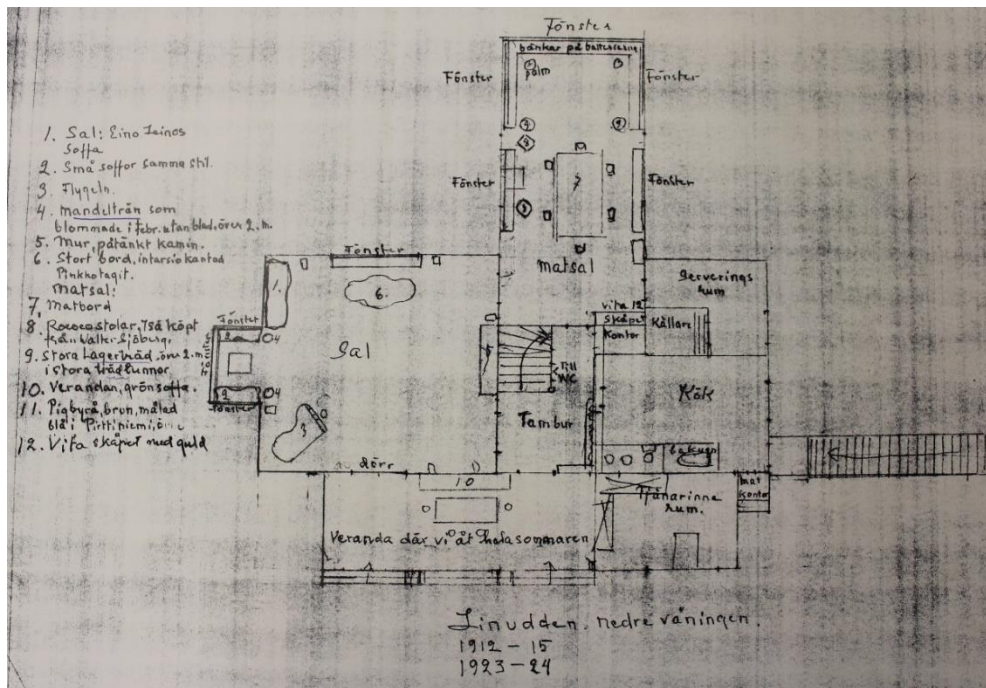 1. Sal: Eino Leinos
soffa
2. Små soffor samma stil.
3. Flygeln.
4. Mandelträn som
blommade i febr. utan blad, över 2. m.
5. Mur, påtänkt kamin.
6. Stort bord, intarsio kantad
Matsal:
7. Matbord
8. Rococo stolar, köpt
från Walter Sjöberg.
9. Stora Lagerträd, över 2. m
i stora trädtunnor
10. Verandan, grön soffa.
11. Pigbyrå, brun, målad
blå i Pirttiniemi,
12. Vita skåpet med guld
Fönster
bänkar på batterierna
palm
Fönster
Fönster
Fönster
7
Fönster
matsal
Serverings
rum
vita 12
skåpet
Kontor
Källare
Fönster
1.
6.
Fönster
2
4
Sal
Fönster
2
4
Fönster
3
Till
WC
Tambur
Kök
bakugn
dörr
10
Tjänarinne
rum.
mat
kontor
Veranda där vi åt hela sommaren
Linudden. nedre våningen.
1912 - 15
1923 - 24